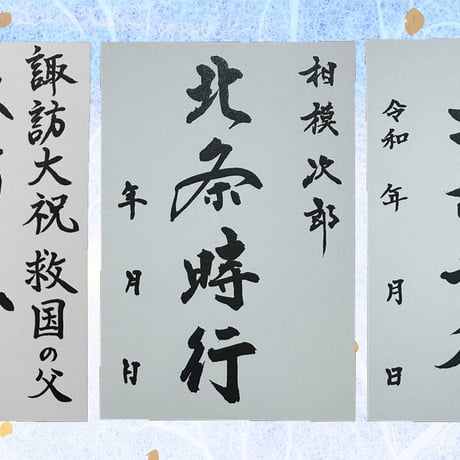 令和 年 月 日
相模次郎
北条時行
年 月 日
諏訪大祝 救国の父